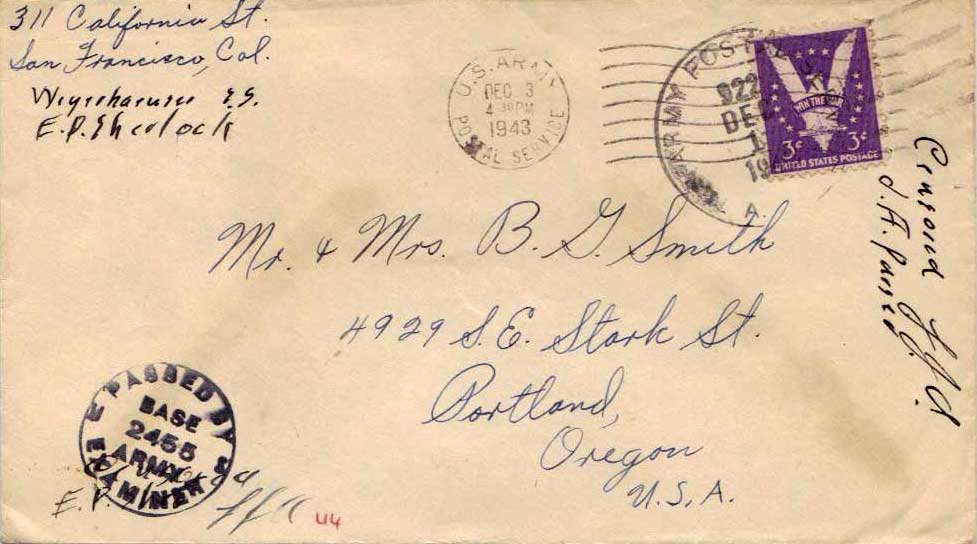 311 California St.
San Francisco, Cal.
E.P.
U.S. ARMY
DEC 3
4-30PM
1943
POSTAL SERVICE
ARMY POSTAL
922
DE
1
19
A.
WIN THE WAR
3¢ 3¢
UNITED STATES POSTAGE
Mr. & Mrs. B. G. Smith
4929 S.E. Stark St.
Portland,
Oregon
U.S.A.
PASSED BY
BASE
2455
ARMY
EXAMINER
E.P.
44